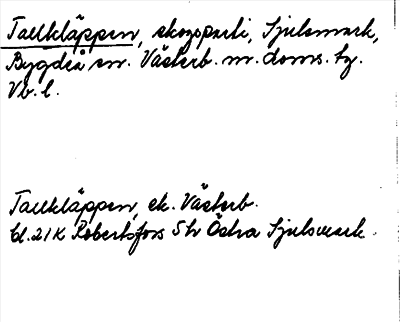 Tallkläppen, skogsparti, Sjulsmark,
Bygdeå sn. Västerb. m. doms. tg.
Vb. l.
Tallkläppen, ek. Västerb.
bl. 21K Robertsfors 5h Östra Sjulsmark.